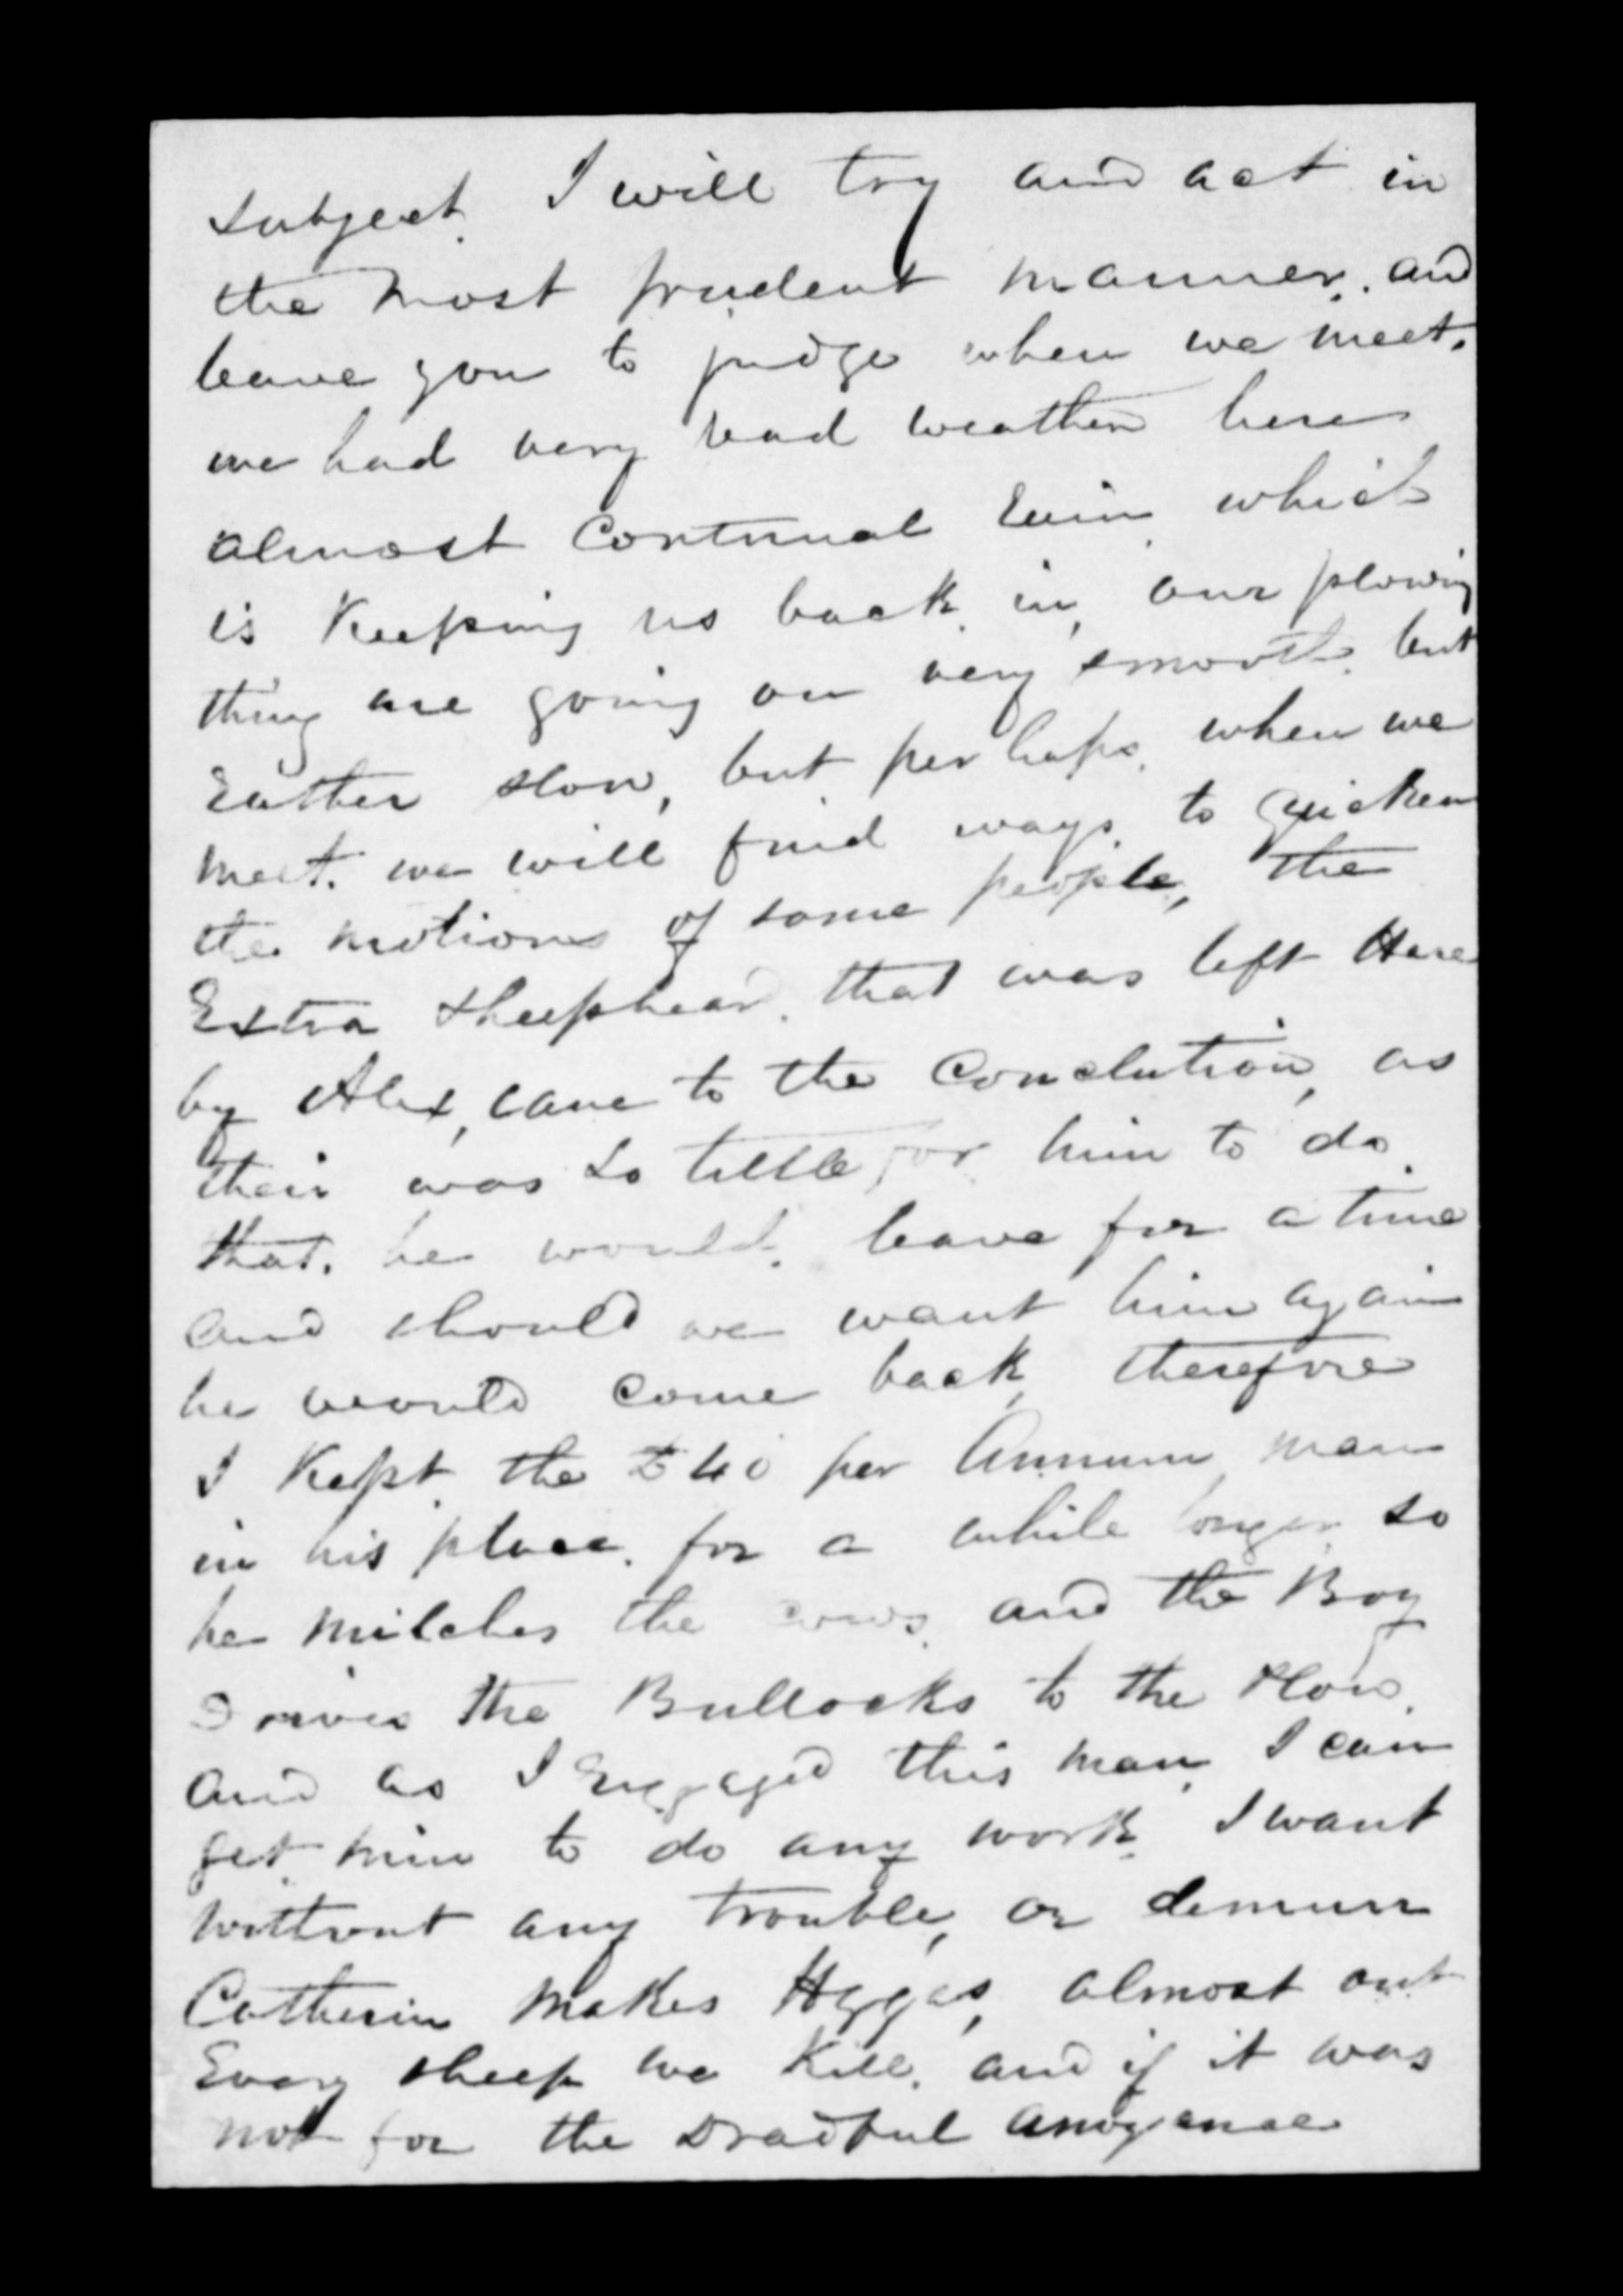 subject. I will try and act in
the most prudent manner, and
leave you to judge when we meet.
we had very bad weather here
almost Contunual Rain which
is Keeping us back in, our plowing
thing are going on very smooth, but
Rather slow, but perhaps, when we
meet. we will find ways to Quicken
the motions of some people, the
Extra Sheephead. that was left Here
by Alex, came to the Conclution, as
their was so little for him to do.
that. he would. leave for a time
and should we want him again
he would come back, therefore
I Kept the £40 per Annum man
in his place. for a while longer so
he milches the cows. and the Boy
Drives the Bullocks to the Plow.
and as I Engaged this man, I can
get him to do any work. I want
without any trouble, or demurr
Catherin makes Hggas, almost out
Every sheep we Kill. and if it was
not for the Dradful anogance